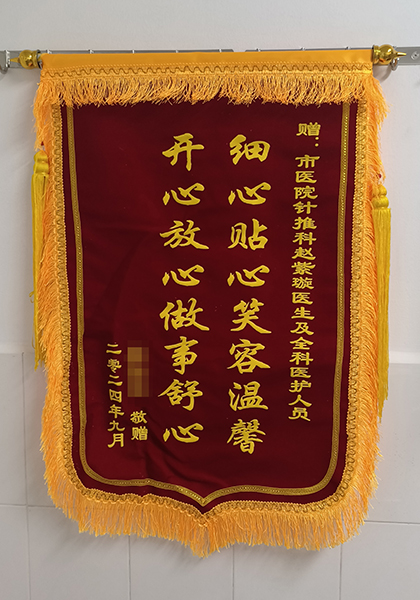 赠：市医院针推科赵紫璇医生及全科医护人员
细心贴心笑容温馨
开心放心做事舒心
敬赠
二零二四年九月